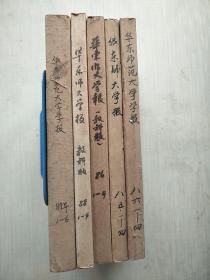 华东师范大学学报
89年
1-6
华东师大学报
教科版
88
1-4
华东师大学报(教科版)
86
1-4
华东师大学报
八五·1-四
华东师范大学学报
八六·1-四